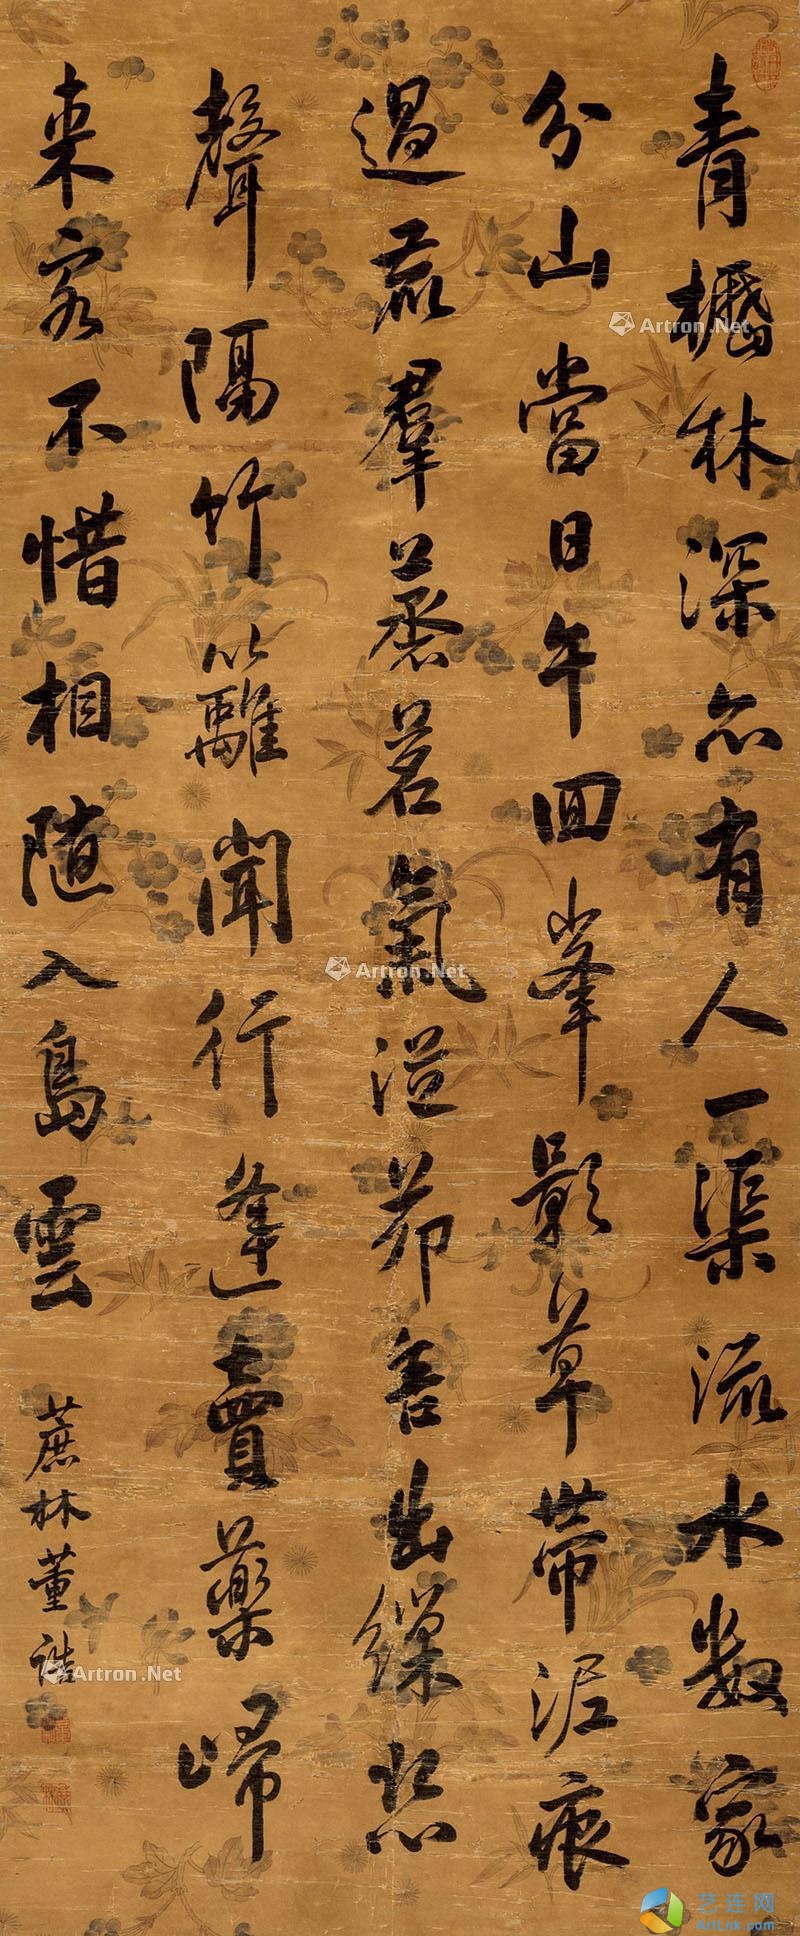 青櫪林深亦有人一渠流水數家
分山當日午囬峯影草帶泥痕
過鹿羣蒸茗氣從茆舍出繰絲
聲隔竹籬聞行逢賣藥歸
来客不惜相隨入島雲
蔗林董誥
Artron.Net
Artron.Net
Artron.Net
艺连网
ArtLnk.com